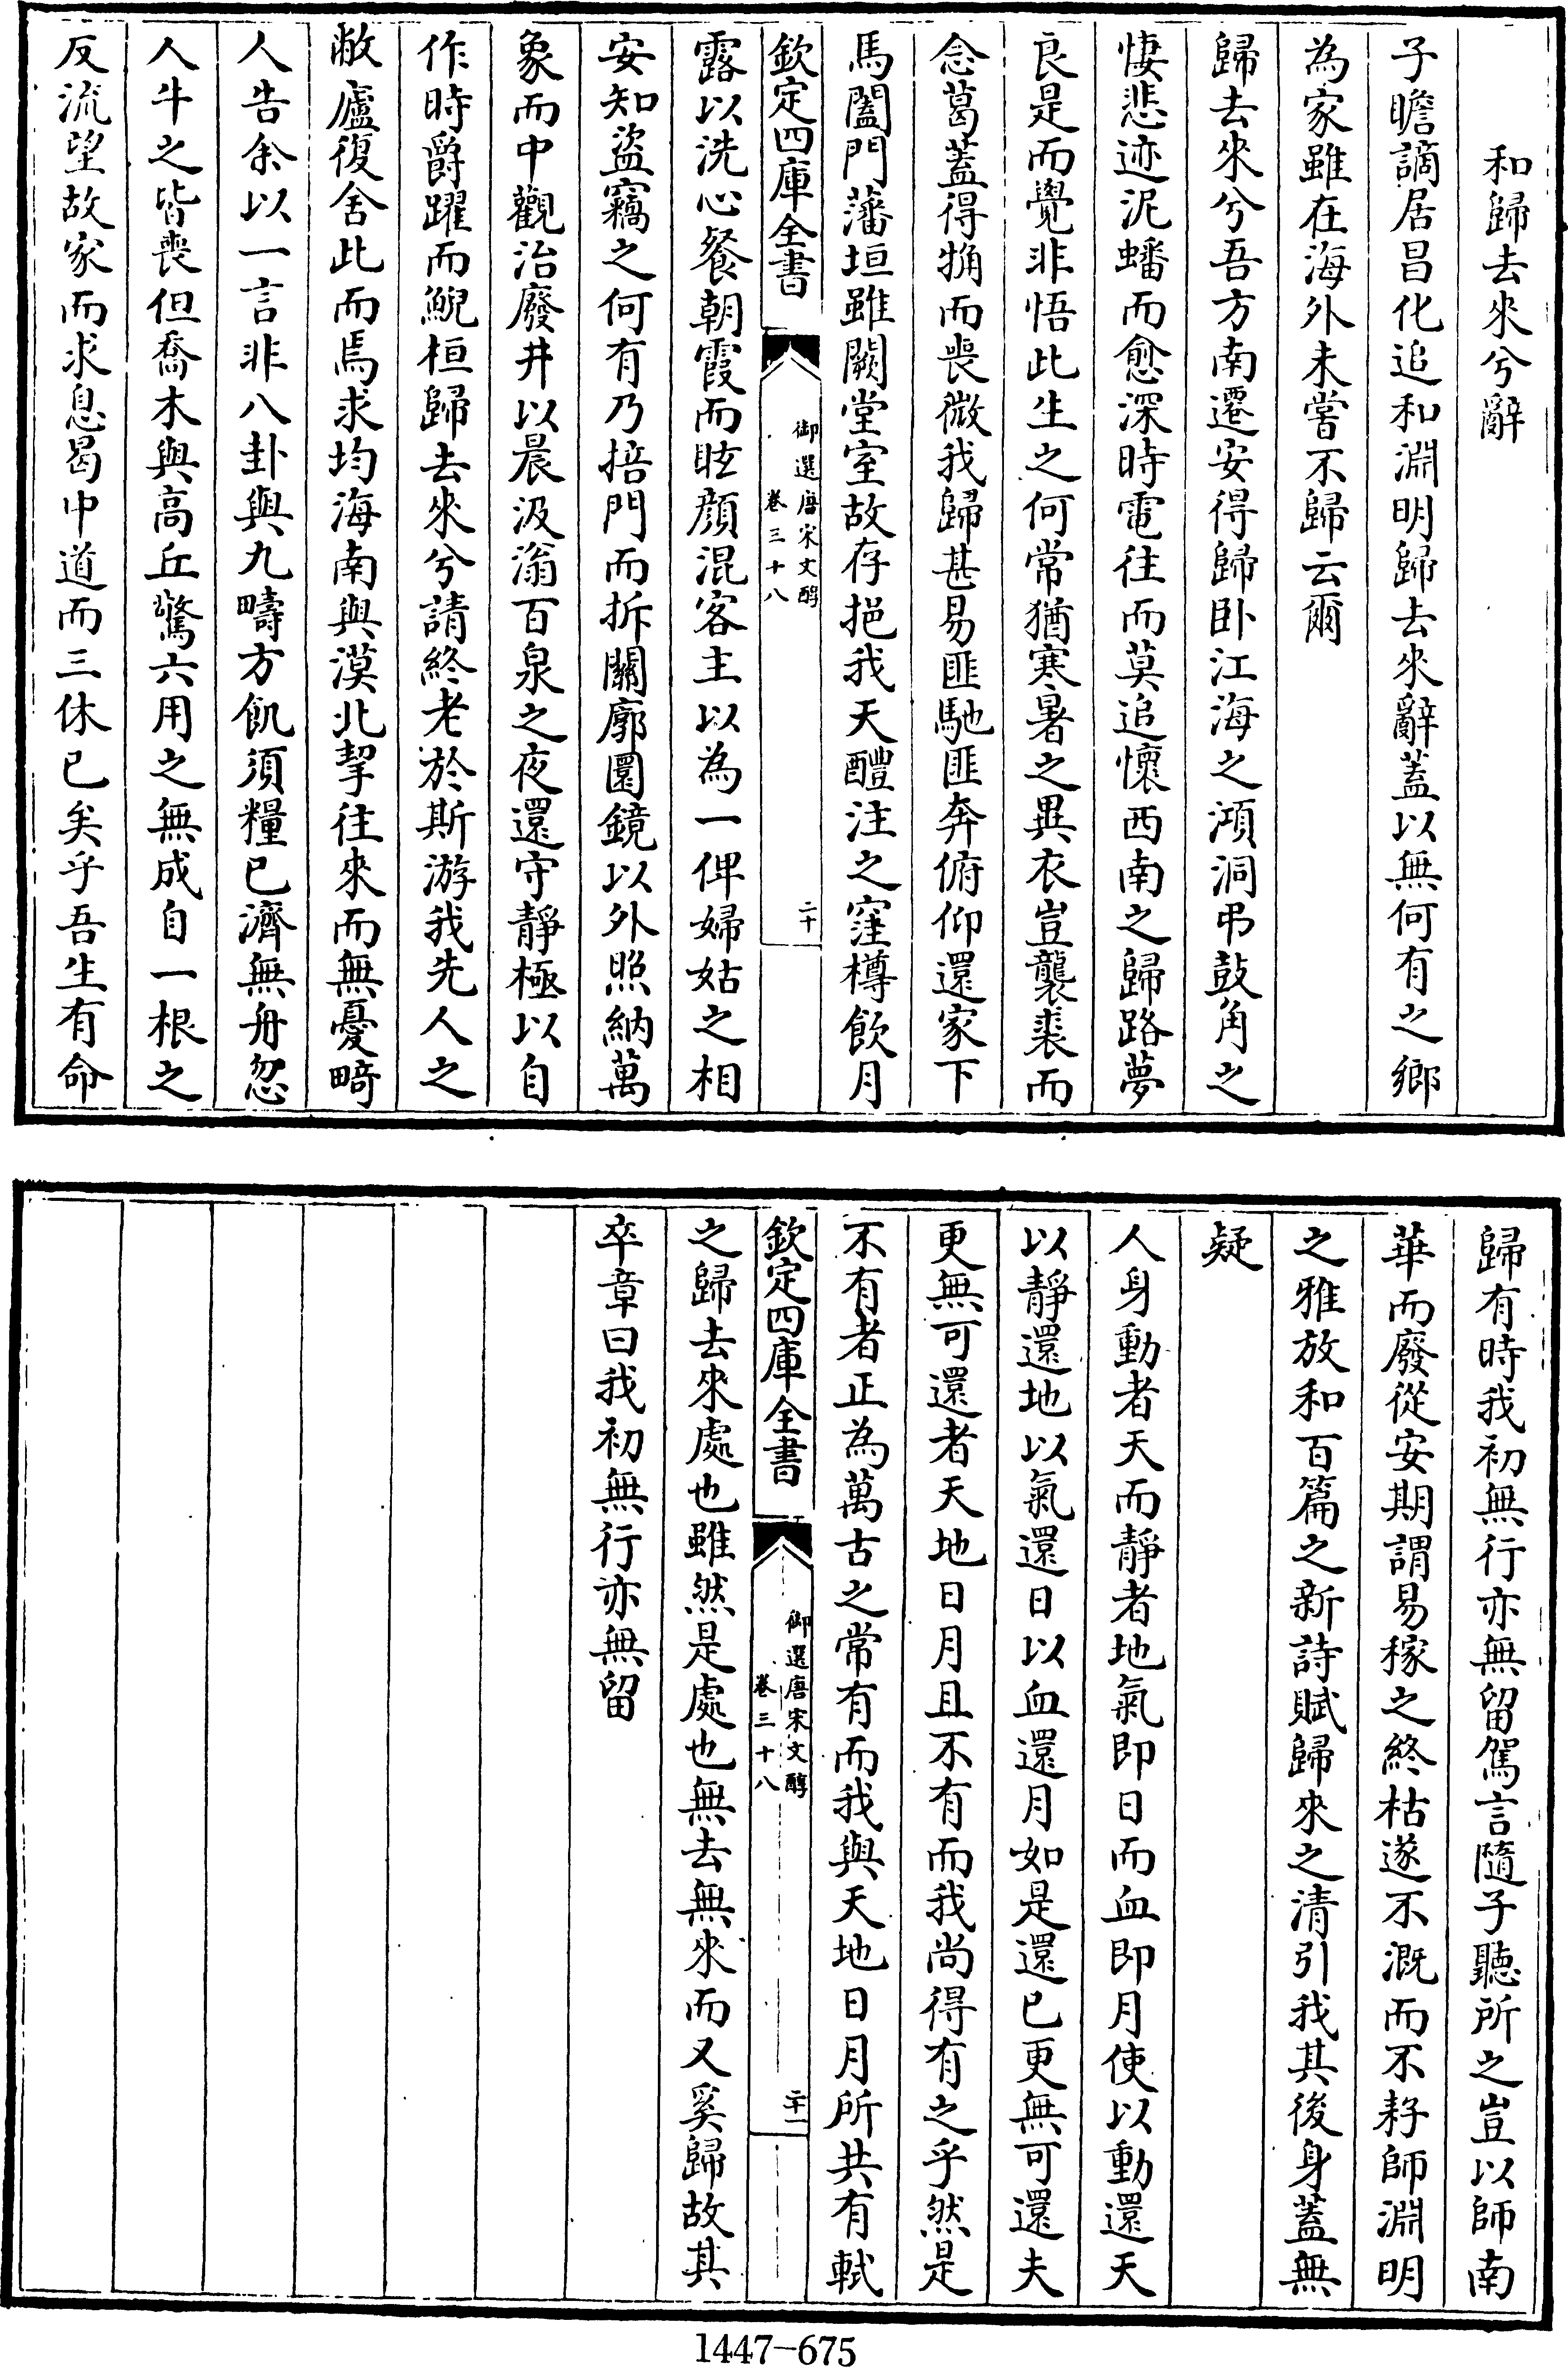 和歸去來兮辭
子瞻謫居昌化追和淵明歸去來辭蓋以無何有之鄉
為家雖在海外未嘗不歸云爾
歸去來兮吾方南遷安得歸卧江海之澒洞弔鼓角之
悽悲迹泥蟠而愈深時電往而莫追懷西南之歸路夢
良是而覺非悟此生之何常猶寒暑之異衣豈襲裘而
念葛蓋得觕而喪微我歸甚易匪馳匪奔俯仰還家下
馬闔門藩垣雖闕堂室故存挹我天醴注之窪樽飲月
欽定四庫全書
御選唐宋文醇
卷三十八
二十
露以洗心餐朝霞而眩顔混客主以為一俾婦姑之相
安知盜竊之何有乃掊門而折關廓圜鏡以外照納萬
象而中觀治廢井以晨汲滃百泉之夜還守靜極以自
作時爵躍而鯢桓歸去來兮請終老於斯游我先人之
敝廬復舍此而焉求均海南與漠北挈往來而無憂畸
人告余以一言非八卦與九疇方飢須糧已濟無舟忽
人牛之皆喪但喬木與高丘驚六用之無成自一根之
反流望故家而求息曷中道而三休已矣乎吾生有命
歸有時我初無行亦無留駕言隨子聽所之豈以師南
華而廢從安期謂易稼之終枯遂不溉而不耔師淵明
之雅放和百篇之新詩賦歸來之清引我其後身蓋無
疑
人身動者天而靜者地氣即日而血即月使以動還天
以靜還地以氣還日以血還月如是還已更無可還夫
更無可還者天地日月且不有而我尚得有之乎然是
不有者正為萬古之常有而我與天地日月所共有軾
欽定四庫全書
御選唐宋文醇
卷三十八
二十一
之歸去來處也雖然是處也無去無來而又奚歸故其
卒章曰我初無行亦無留
1447-675